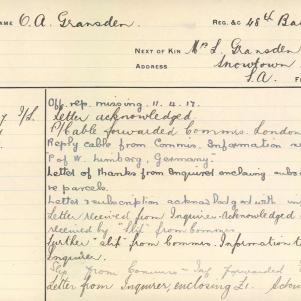 NAME C. A. Gransden REG. &C 48th Ba
NEXT OF KIN Mrs L. Gransden
ADDRESS Snowtown
S.A.
Off. rep. missing. 11. 4. 17.
I/L. Letter acknowledged
P/Cable forwarded Commrs. London
Reply cable from Commrs. Information
P of W. Limburg, Germany.
Letter of thanks from Inquirer enclosing
re parcels.
Letter & subscription acknowledged with
Letter received from Inquirer. Acknowledged
received by "slip" from Commrs
Further "slip" from Commrs. Information
Inquirer.
Slip from Commrs - Inf. forwarded
Letter from Inquirer, enclosing £1.